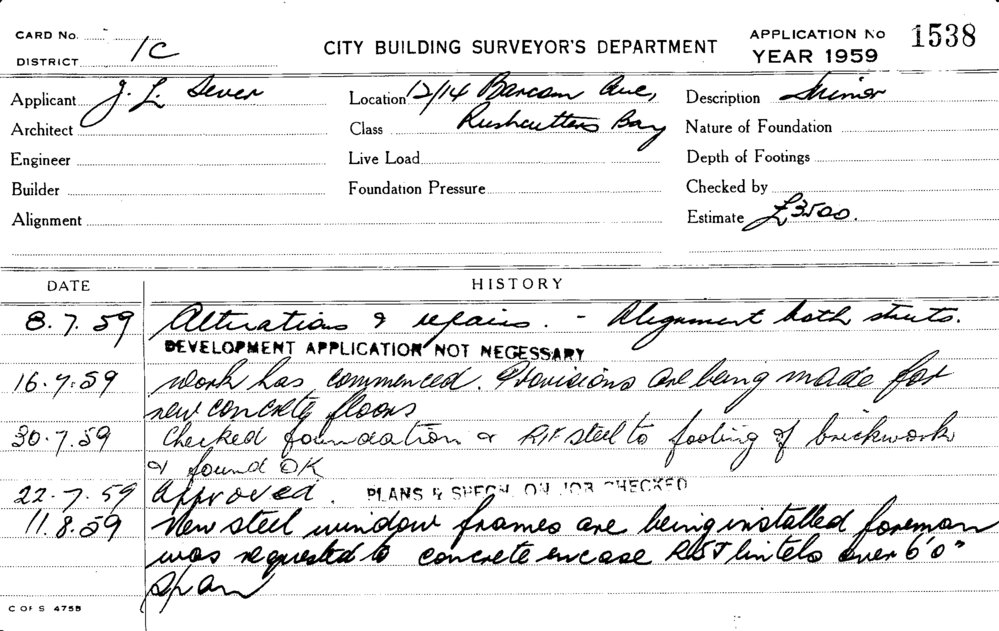 CARD No.
DISTRICT 1C
CITY BUILDING SURVEYOR'S DEPARTMENT
APPLICATION No 1538
YEAR 1959
Applicant J. L. Sever
Location 12/14 Barcom Ave,
Description Minor
Architect
Class Rushcutters Bay
Nature of Foundation
Engineer
Live Load
Depth of Footings
Builder
Foundation Pressure
Checked by
Alignment
Estimate £3500.
DATE HISTORY
8.7.59 Alterations & repairs. - Alignment both streets.
DEVELOPMENT APPLICATION NOT NECESSARY
16.7.59 Work has commenced. Provisions are being made for
new concrete floors
30.7.59 Checked foundation & R/F steel to footing of brickwork
& found OK
22.7.59 Approved. PLANS & SPECN. ON JOB CHECKED
11.8.59 New steel window frames are being installed foreman
was requested to concrete encase RSJ lintels over 6'0"
span
C OF S 4755